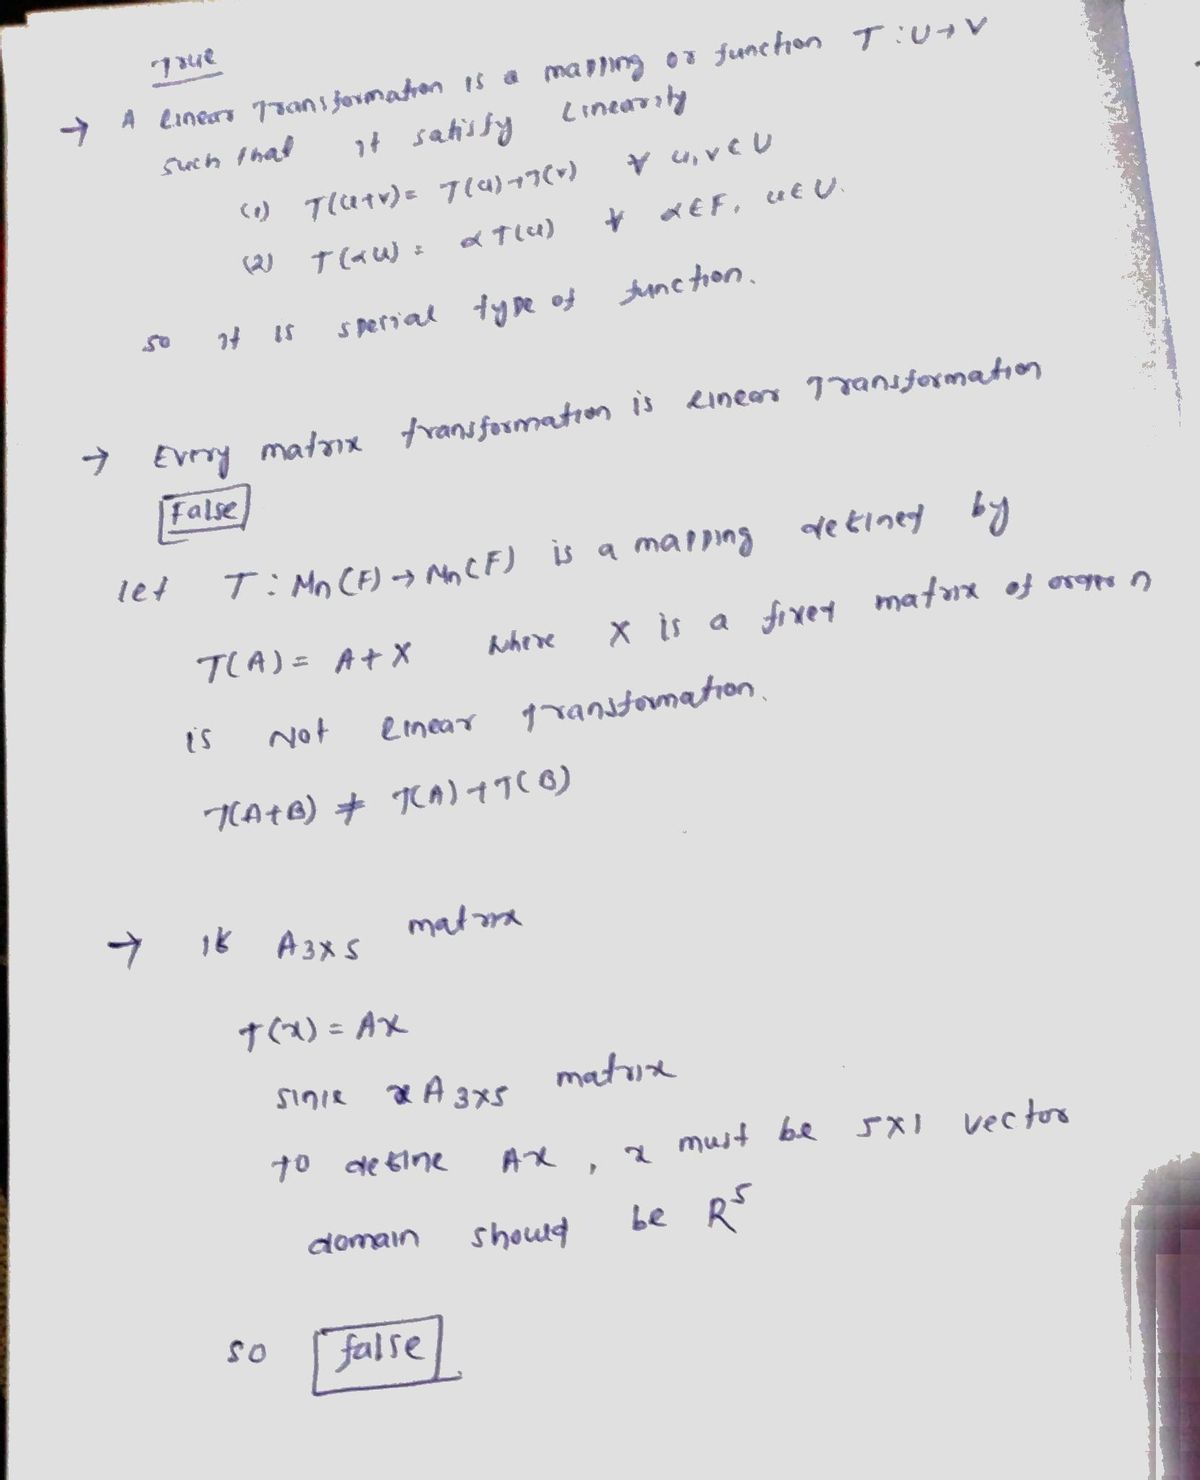 True
→ A linear Transformation is a mapping or function T : U → V
such that it satisfy Linearity
(1) T(u+v) = T(u)+T(v) ∀ u,v ∈ U
(2) T(αu) = αT(u) ∀ α∈F, u∈U.
so it is special type of function.
→ Every matrix transformation is linear Transformation
False
let T : Mn(F) → Mn(F) is a mapping defined by
T(A) = A+X where X is a fixed matrix of order n
is Not linear transformation.
T(A+B) ≠ T(A)+T(B)
→ if A3×5 matrix
T(x) = Ax
since A3×5 matrix
to define Ax , x must be 5×1 vector
domain should be R⁵
so false